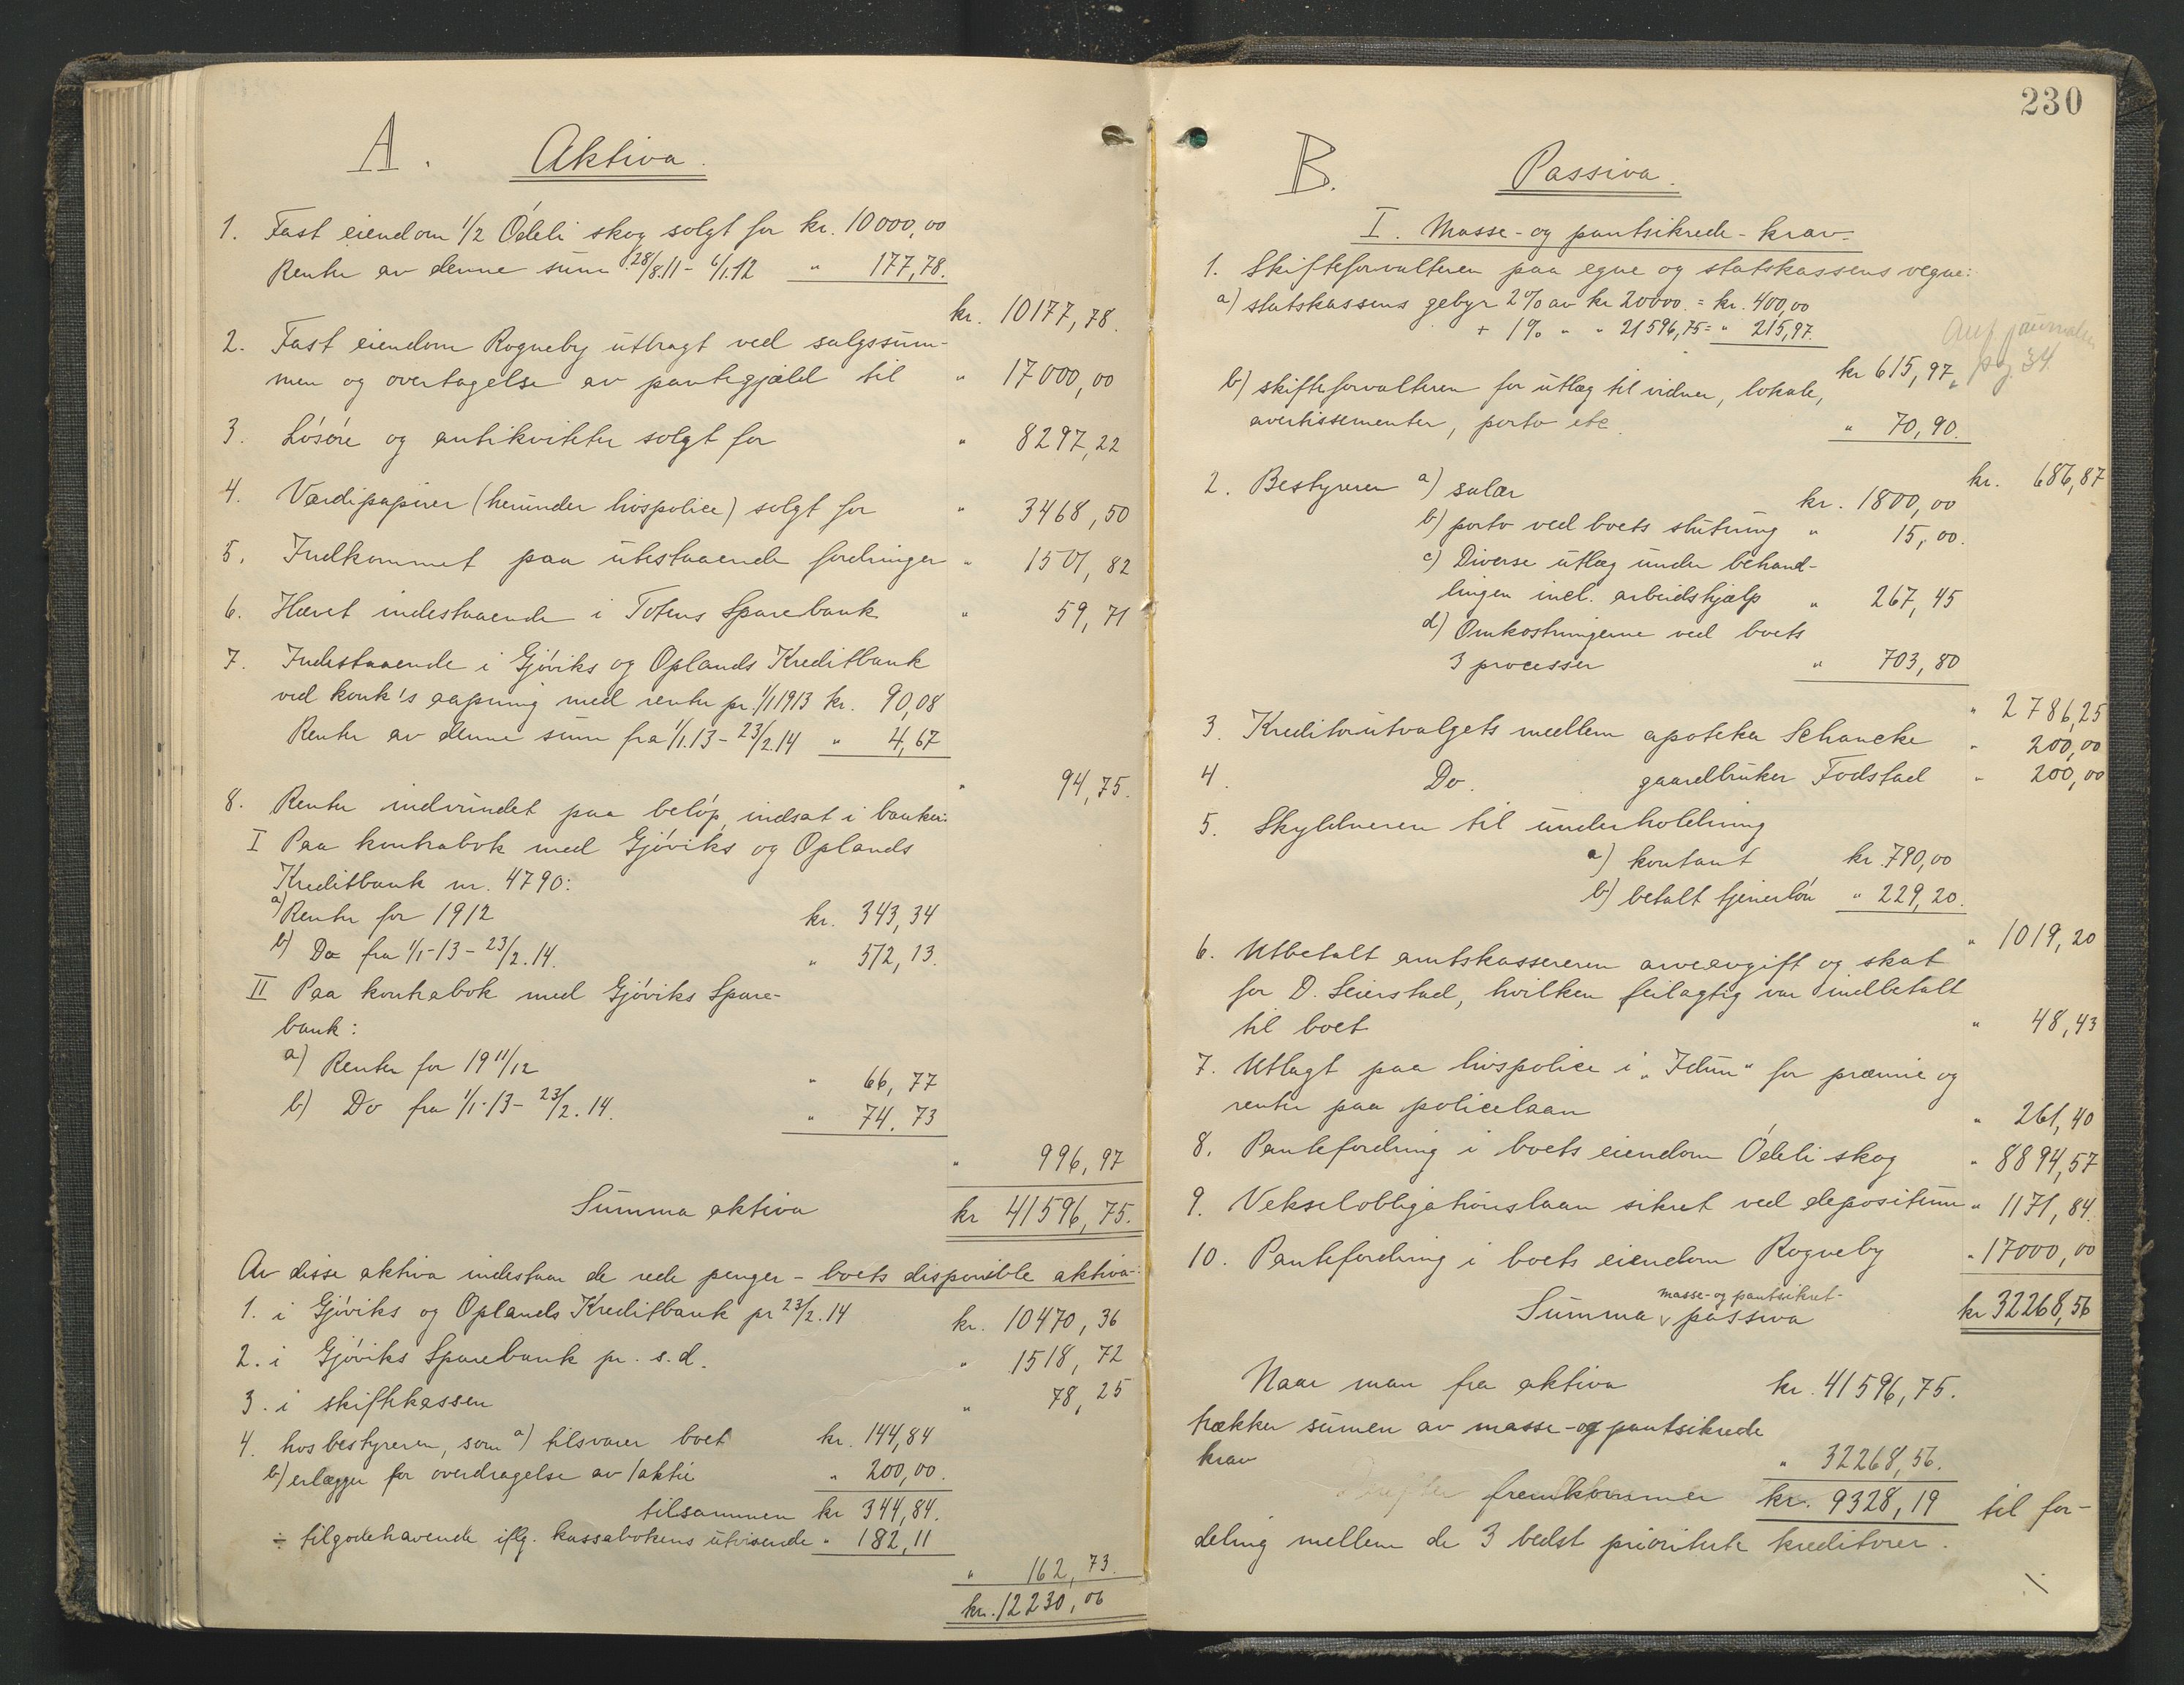 A. Aktiva.
1. Fast eiendom 1/2 Ödeli skog solgt for kr. 10000,00
Renter av denne sum 28/8.11 - 6/1.12 " 177,78.
kr. 10177,78.
2. Fast eiendom Rogneby utlagt ved salgssum-
men og overtagelse av pantegjæld til " 17000,00
3. Lösöre og antikviteter solgt for " 8297,22
4. Værdipapirer (herunder livspolice) solgt for " 3468,50
5. Indkommet paa utestaaende fordringer " 1501,82
6. Hævet indestaaende i Totens Sparebank " 59,71
7. Indestaaende i Gjöviks og Oplands Kreditbank
ved konk's aapning med renter pr. 1/1 1913 kr. 90,08
Renter av denne sum fra 1/1.13 - 23/2.14 " 4,67
" 94,75.
8. Renter indvundet paa belöp, indsat i banker:
I Paa kontrabok med Gjöviks og Oplands
Kreditbank nr. 4790:
a) Renter for 1912 kr. 343,34
b) Do fra 1/1-13 - 23/2.14. " 512,13.
II Paa kontrabok med Gjöviks Spare-
bank:
a) Renter for 19 11/12 " 66,77
b) Do fra 1/1-13 - 23/2.14. " 74.73
" 996,97
Summa aktiva kr 41596,75.
Av disse aktiva indestaar de rede penger - boets disponible aktiva:
1. i Gjöviks og Oplands Kreditbank pr 23/2.14 kr. 10470,36
2. i Gjöviks Sparebank pr. s.d. " 1518,72
3. i skiftekassen " 78,25
4. hos bestyreren, som a) tilsvarer boet kr. 144,84
b) erlægger for overdragelse av 1 aktie " 200,00.
tilsammen kr 344,84.
÷ tilgodehavende iflg. kassabokens utvisende " 182,11
" 162,73.
kr. 12230,06
230
B. Passiva.
I. Masse- og pantsikrede - krav.
1. Skifteforvalteren paa egne og statskassens vegne:
a) statskassens gebyr 2% av kr 20000. = kr. 400,00
+ 1% " " 21596,75 = " 215,97.
kr 615,97
pag. 34
b) skifteforvalteren for utlæg til vidner, lokale,
avertissementer, porto etc. " 70,90.
kr. 686,87
2. Bestyreren a) salær kr. 1800,00
b) porto ved boets slutning " 15,00.
c) Diverse utlæg under behand-
lingen incl. arbeidshjælp " 267,45
d) Omkostningerne ved boets
3 processer " 703,80
" 2786,25
3. Kreditorutvalgets medlem apoteker Schancke " 200,00
4. Do. gaardbruker Fodstad " 200,00
5. Skyldneren til underholdning
a) kontant kr. 790,00
b) betalt tjenerlön " 229,20.
" 1019,20
6. Utbetalt amtskassereren arveavgift og skat
for O. Seierstad, hvilken feilagtig var indbetalt
til boet " 48,43
7. Utlagt paa livspolice i "Idun" for præmie og
renter paa policelaan " 261,40
8. Pantefordring i boets eiendom Ödeli skog " 8894,57
9. Vekselobligationslaan sikret ved depositum " 1171,84.
10. Pantefordring i boets eiendom Rogneby " 17000,00
masse- og pantsikret-
Summa v passiva kr 32268,56
Naar man fra aktiva kr. 41596,75.
trækker summen av masse- og pantsikrede
krav " 32268,56.
fremkommer kr. 9328,19 til for-
deling mellem de 3 bedst prioriterte kreditorer.